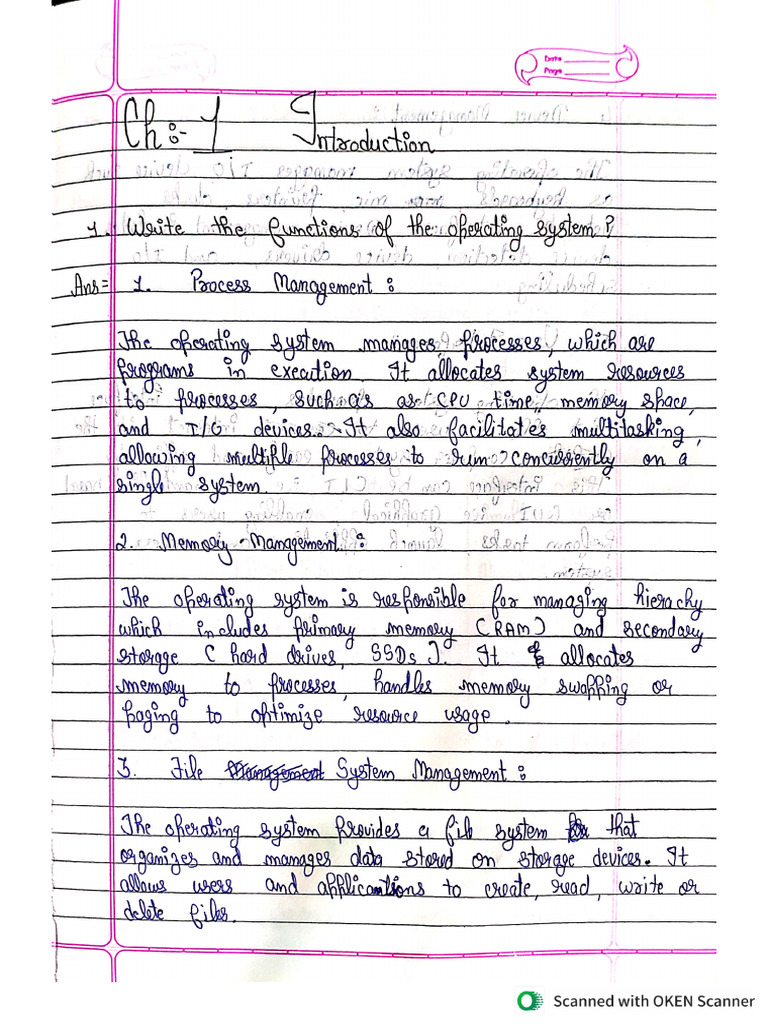 Date
Page
Ch:- 1 Introduction
1. Write the functions of the operating system?
Ans= 1. Process Management :
The operating system manages processes, which are
programs in execution. It allocates system resources
to processes, such as as CPU time, memory space,
and I/O devices. It also facilitates multitasking,
allowing multiple processes to run concurrently on a
single system.
2. Memory Management :
The operating system is responsible for managing hierachy
which includes primary memory (RAM) and secondary
storage (hard drives, SSDs). It allocates
memory to processes, handles memory swapping or
paging to optimize resource usage.
3. File Management System Management :
The operating system provides a file system that
organizes and manages data stored on storage devices. It
allows users and applications to create, read, write or
delete files.
Scanned with OKEN Scanner